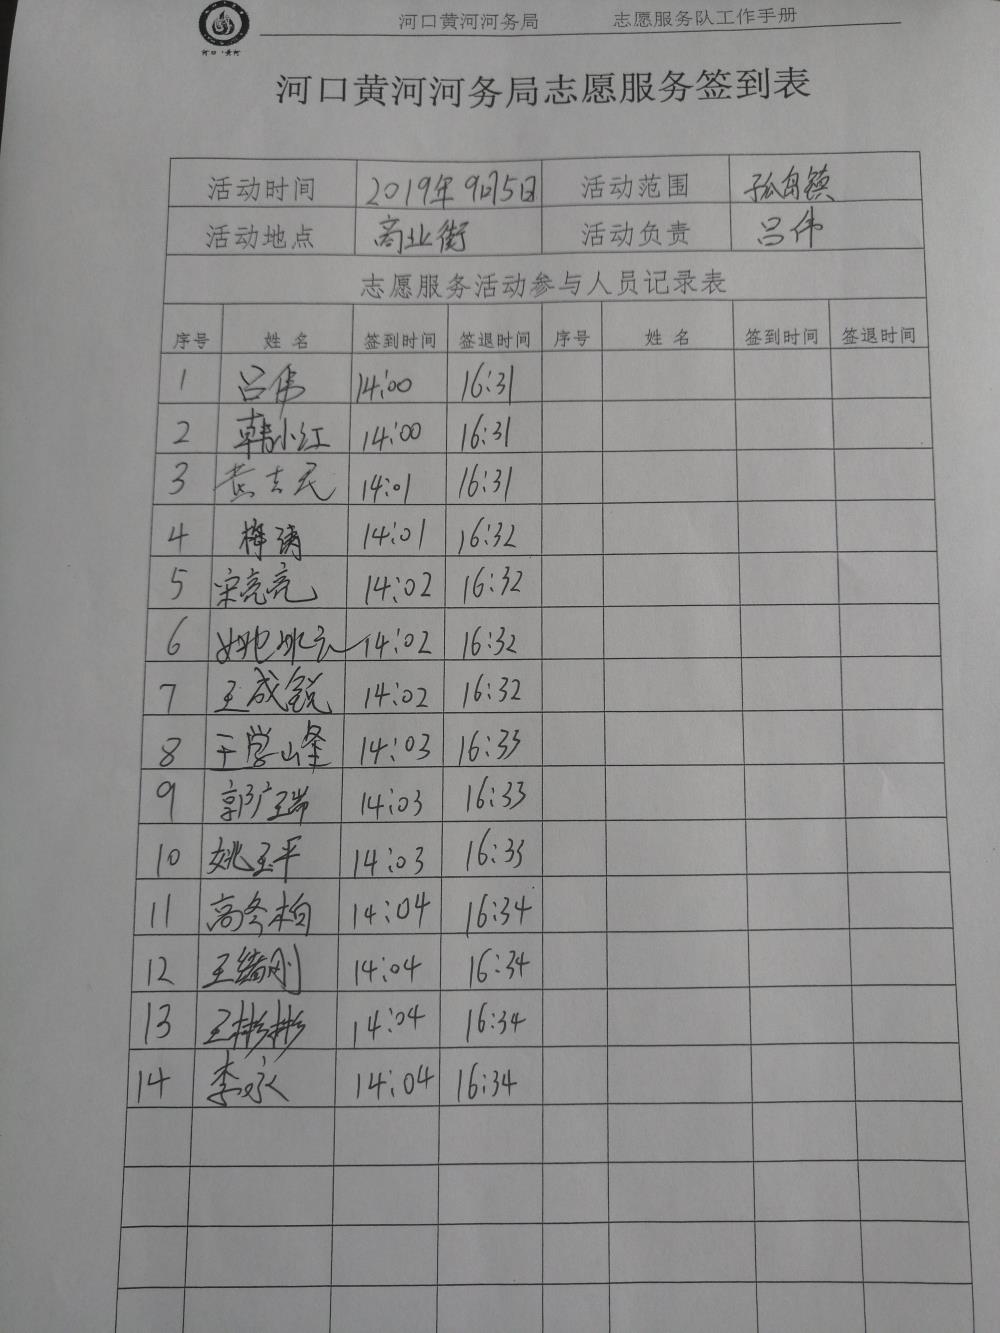 河口黄河河务局 志愿服务队工作手册
河口·黄河
河口黄河河务局志愿服务签到表
活动时间 2019年9月5日 活动范围 孤岛镇
活动地点 商业街 活动负责 吕伟
志愿服务活动参与人员记录表
序号 姓名 签到时间 签退时间 序号 姓名 签到时间 签退时间
1 吕伟 14:00 16:31
2 韩小红 14:00 16:31
3 黄吉民 14:01 16:31
4 梅涛 14:01 16:32
5 宋亮亮 14:02 16:32
6 14:02 16:32
7 王成锐 14:02 16:32
8 王学峰 14:03 16:33
9 郭广瑞 14:03 16:33
10 姚玉平 14:03 16:33
11 高冬柏 14:04 16:34
12 王绪刚 14:04 16:34
13 王彬彬 14:04 16:34
14 李永 14:04 16:34